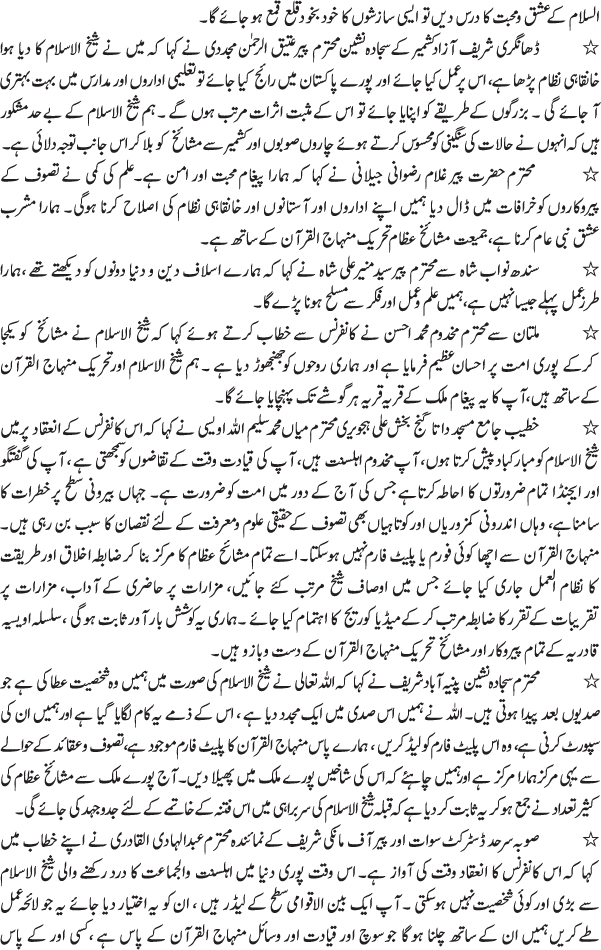 السلام کے عشق و محبت کا درس دیں تو ایسی سازشوں کا خود بخود قلع قمع ہو جائے گا۔
☆ ڈھانگری شریف آزاد کشمیر کے سجادہ نشین محترم پیر عتیق الرحمٰن مجددی نے کہا کہ میں نے شیخ الاسلام کا دیا ہوا
خانقاہی نظام پڑھا ہے، اس پر عمل کیا جائے اور پورے پاکستان میں رائج کیا جائے تو تعلیمی اداروں اور مدارس میں بہت بہتری
آ جائے گی۔ بزرگوں کے طریقے کو اپنایا جائے تو اس کے مثبت اثرات مرتب ہوں گے۔ ہم شیخ الاسلام کے بے حد مشکور
ہیں کہ انہوں نے حالات کی سنگینی کو محسوس کرتے ہوئے چاروں صوبوں اور کشمیر سے مشائخ کو بلا کر اس جانب توجہ دلائی ہے۔
☆ محترم حضرت پیر غلام رضوانی جیلانی نے کہا کہ ہمارا پیغام محبت اور امن ہے۔ علم کی کمی نے تصوف کے
پیروکاروں کو خرافات میں ڈال دیا ہمیں اپنے اداروں اور آستانوں اور خانقاہی نظام کی اصلاح کرنا ہوگی۔ ہمارا مشرب
عشق نبی عام کرنا ہے، جمیعت مشائخ عظام تحریک منہاج القرآن کے ساتھ ہے۔
☆ سندھ نواب شاہ سے محترم پیر سید منیر علی شاہ نے کہا کہ ہمارے اسلاف دین و دنیا دونوں کو دیکھتے تھے، ہمارا
طرز عمل پہلے جیسا نہیں ہے، ہمیں علم و عمل اور فکر سے مسلح ہونا پڑے گا۔
☆ ملتان سے محترم مخدوم محمد احسن نے کانفرنس سے خطاب کرتے ہوئے کہا کہ شیخ الاسلام نے مشائخ کو یکجا
کر کے پوری امت پر احسان عظیم فرمایا ہے اور ہماری روحوں کو جھنجھوڑ دیا ہے۔ ہم شیخ الاسلام اور تحریک منہاج القرآن
کے ساتھ ہیں، آپ کا یہ پیغام ملک کے قریہ قریہ ہر گوشے تک پہنچایا جائے گا۔
☆ خطیب جامع مسجد داتا گنج بخش علی ہجویری محترم میاں محمد سلیم اللہ اویسی نے کہا کہ اس کانفرنس کے انعقاد پر میں
شیخ الاسلام کو مبارکباد پیش کرتا ہوں، آپ مخدوم اہلسنت ہیں، آپ کی قیادت وقت کے تقاضوں کو سمجھتی ہے، آپ کی گفتگو
اور ایجنڈا تمام ضرورتوں کا احاطہ کرتا ہے جس کی آج کے دور میں امت کو ضرورت ہے۔ جہاں بیرونی سطح پر خطرات کا
سامنا ہے، وہاں اندرونی کمزوریاں اور کوتاہیاں بھی تصوف کے حقیقی علوم و معرفت کے لئے نقصان کا سبب بن رہی ہیں۔
منہاج القرآن سے اچھا کوئی فورم یا پلیٹ فارم نہیں ہوسکتا۔ اسے تمام مشائخ عظام کا مرکز بنا کر ضابطہ اخلاق اور طریقت
کا نظام العمل جاری کیا جائے جس میں اوصاف شیخ مرتب کئے جائیں، مزارات پر حاضری کے آداب، مزارات پر
تقریبات کے تقرر کا ضابطہ مرتب کر کے میڈیا کوریج کا اہتمام کیا جائے۔ ہماری یہ کوشش بار آور ثابت ہوگی، سلسلہ اویسیہ
قادریہ کے تمام پیروکار اور مشائخ تحریک منہاج القرآن کے دست و بازو ہیں۔
☆ محترم سجادہ نشین پنیہ آباد شریف نے کہا کہ اللہ تعالی نے شیخ الاسلام کی صورت میں ہمیں وہ شخصیت عطا کی ہے جو
صدیوں بعد پیدا ہوتی ہیں۔ اللہ نے ہمیں اس صدی میں ایک مجدد دیا ہے، اس کے ذمے یہ کام لگایا گیا ہے اور ہمیں ان کی
سپورٹ کرنی ہے، وہ اس پلیٹ فارم کو لیڈ کریں، ہمارے پاس منہاج القرآن کا پلیٹ فارم موجود ہے، تصوف و عقائد کے حوالے
سے یہی مرکز ہمارا مرکز ہے اور ہمیں چاہئے کہ اس کی شاخیں پورے ملک میں پھیلا دیں۔ آج پورے ملک سے مشائخ عظام کی
کثیر تعداد نے جمع ہو کر یہ ثابت کر دیا ہے کہ قبلہ شیخ الاسلام کی سربراہی میں اس فتنہ کے خاتمے کے لئے جدوجہد کی جائے گی۔
☆ صوبہ سرحد ڈسٹرکٹ سوات اور پیر آف مانکی شریف کے نمائندہ محترم عبدالہادی القادری نے اپنے خطاب میں
کہا کہ اس کانفرنس کا انعقاد وقت کی آواز ہے۔ اس وقت پوری دنیا میں اہلسنت والجماعت کا درد رکھنے والی شیخ الاسلام
سے بڑی اور کوئی شخصیت نہیں ہوسکتی۔ آپ ایک بین الاقوامی سطح کے لیڈر ہیں، ان کو یہ اختیار دیا جائے یہ جو لائحہ عمل
طے کریں ہمیں ان کے ساتھ چلنا ہوگا جو سوچ اور قیادت اور وسائل منہاج القرآن کے پاس ہے، کسی اور کے پاس